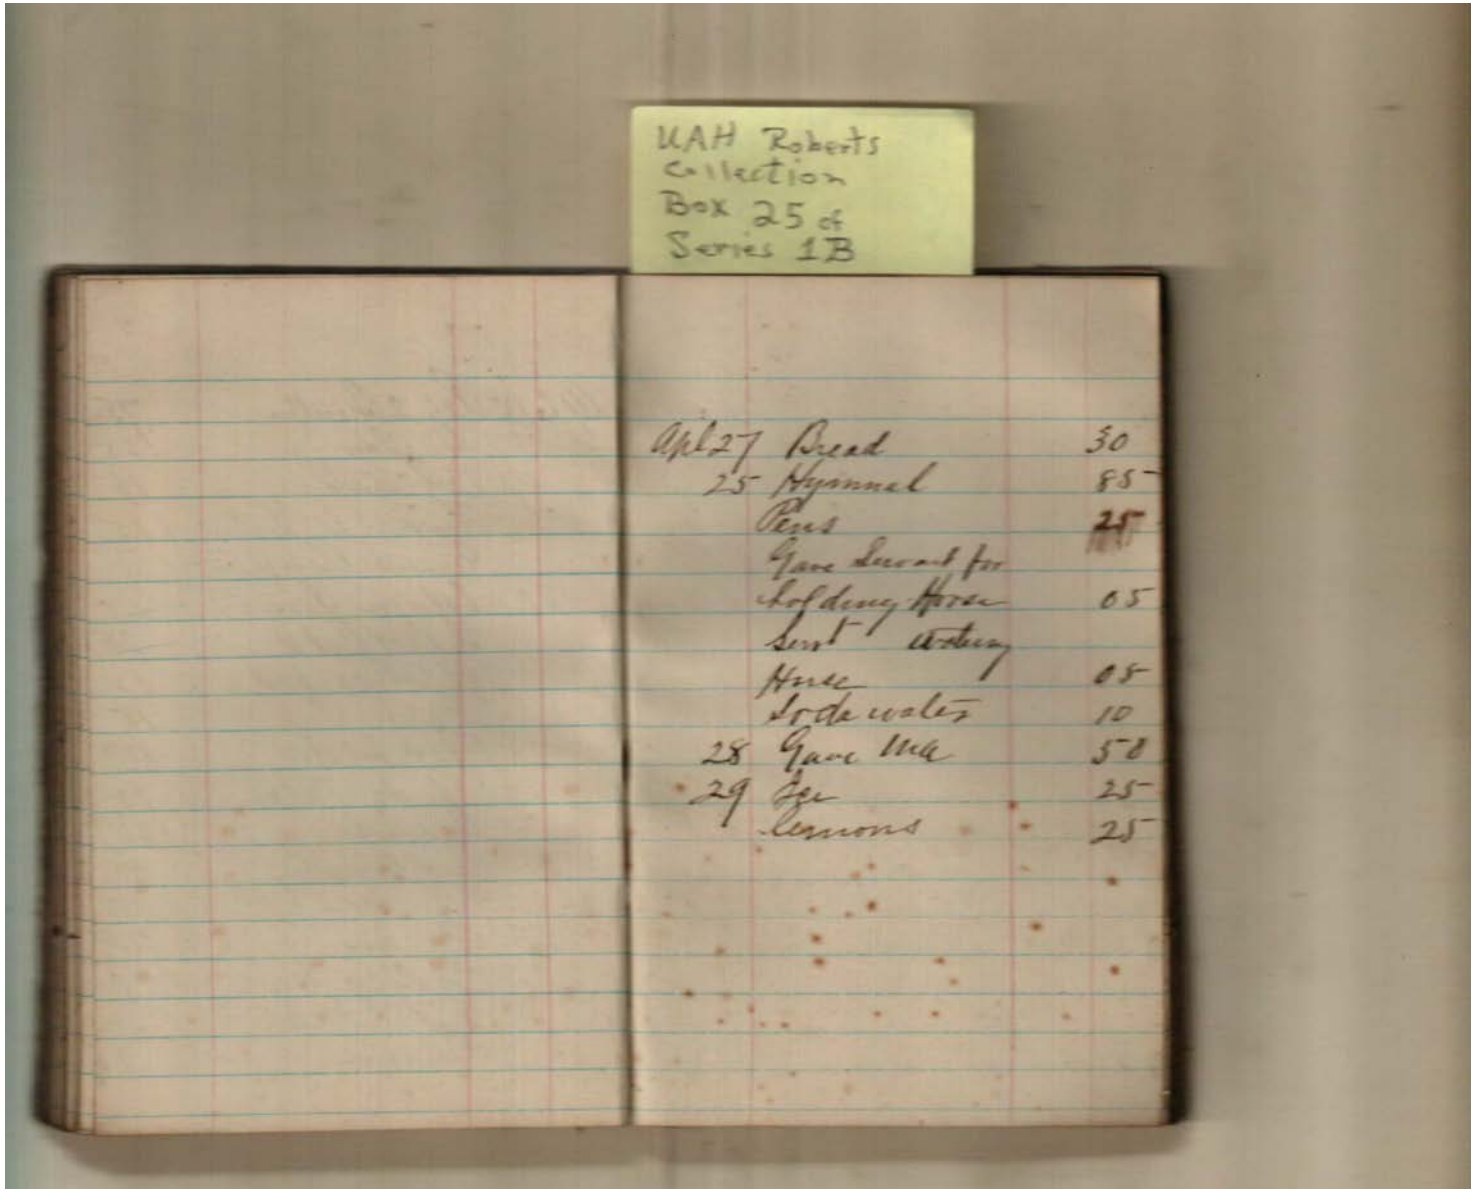 UAH Roberts
Collection
Box 25 of
Series 1B
Apl 27 Bread 30
25 Hymnal 85
Pens 25
Gave Servant for
holding Horse 05
Servt watering
Horse 05
Soda water 10
28 Gave Ma 50
29 Ice 25
Lemons 25